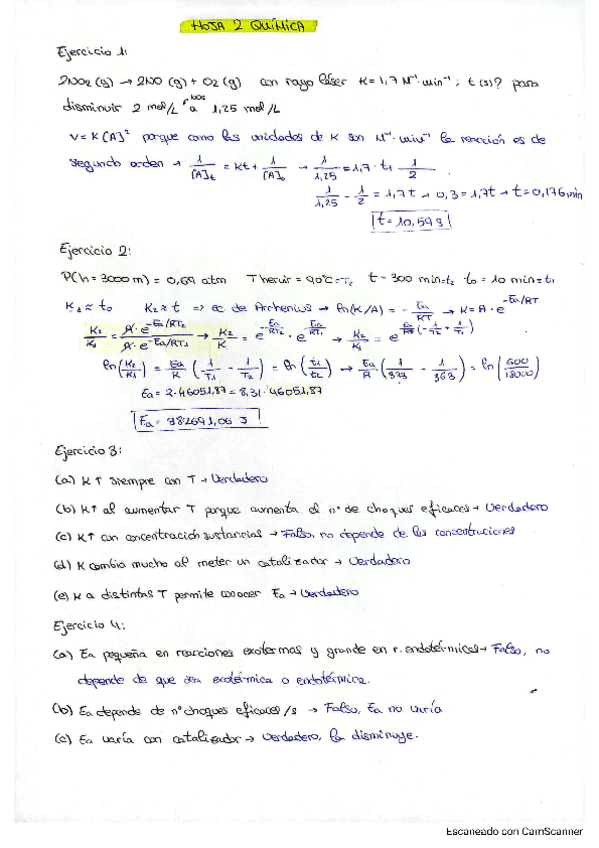 HOJA 2 QUÍMICA
Ejercicio 1:
2NO₂ (g) → 2NO (g) + O₂ (g) con rayo láser K = 1,7 M⁻¹·min⁻¹; t (s)? para
disminuir 2 mol/L NO₂ a 1,25 mol/L
V = K[A]² porque como las unidades de K son M⁻¹·min⁻¹ la reacción es de
segundo orden → 1/[A]t = Kt + 1/[A]₀ → 1/1,25 = 1,7·t + 1/2
1/1,25 - 1/2 = 1,7t → 0,3 = 1,7t → t = 0,176 min
t = 10,59 s
Ejercicio 2:
P(h = 3000 m) = 0,69 atm T hervir = 90°C = T₂ t = 300 min = t₂ t₀ = 10 min = t₁
K₁ ≈ t₀ K₂ ≈ t ⇒ ec de Arrhenius → ln(K/A) = - Ea/RT → K = A · e^-Ea/RT
K₂/K₁ = A·e^-Ea/RT₂ / A·e^-Ea/RT₁ → K₂/K = e^-Ea/RT₂ · e^Ea/RT₁ → K₂/K₁ = e^Ea/R (-1/T₂ + 1/T₁)
ln(K₂/K₁) = Ea/R (1/T₁ - 1/T₂) = ln(t₁/t₂) → Ea/R (1/373 - 1/363) = ln(600/18000)
Ea = 2·46051,87 = 8,31·46051,87
Ea = 382691,06 J
Ejercicio 3:
(a) K↑ siempre con T → Verdadero
(b) K↑ al aumentar T porque aumenta el nº de choques eficaces → Verdadero
(c) K↑ con concentración sustancias → Falso, no depende de las concentraciones
(d) K cambia mucho al meter un catalizador → Verdadero
(e) K a distintas T permite conocer Ea → Verdadero
Ejercicio 4:
(a) Ea pequeña en reacciones exotermas y grande en r. endotérmicas → Falso, no
depende de que sea exotérmica o endotérmica.
(b) Ea depende de nº choques eficaces/s → Falso, Ea no varía
(c) Ea varía con catalizador → Verdadero, la disminuye.
Escaneado con CamScanner